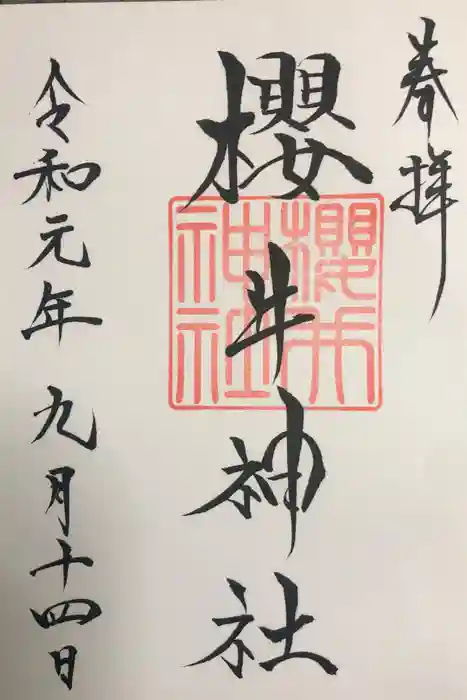 奉拝
櫻井神社
櫻井
神社
令和元年 九月十四日